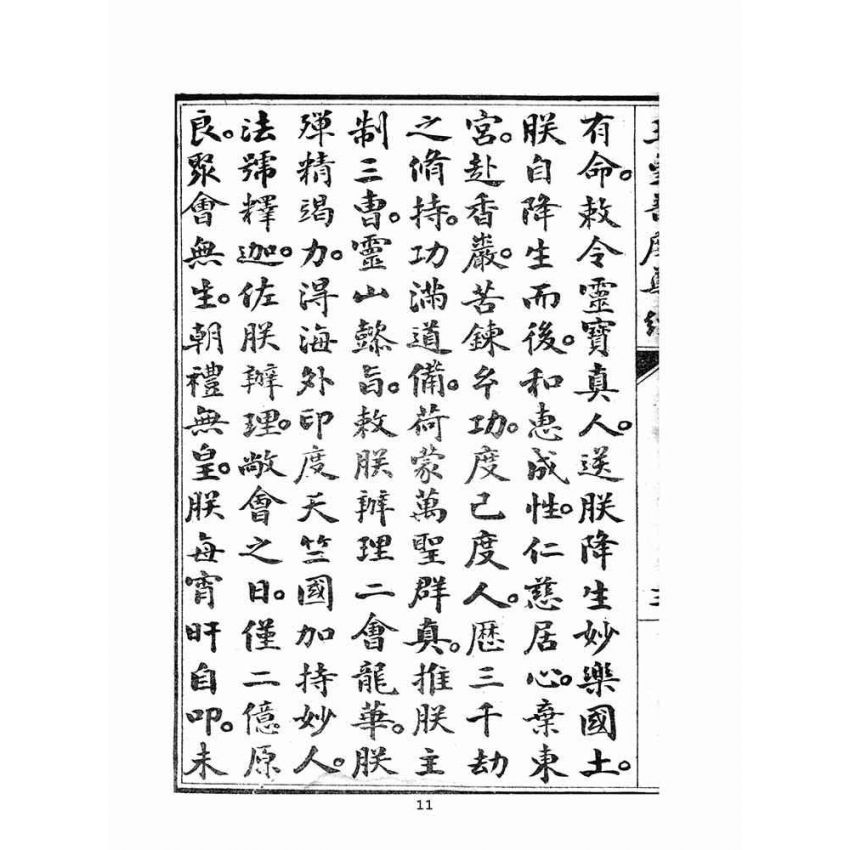 有命。敕令靈寶真人。送朕降生妙樂國土。
朕自降生而後。和惠成性。仁慈居心。棄東
宮。赴香嚴。苦鍊玄功。度己度人。歷三千劫
之脩持。功滿道備。荷蒙萬聖群真。推朕主
制三曹。靈山懿旨。敕朕辦理二會龍華。朕
殫精竭力。得海外印度天竺國加持妙人。
法號釋迦。佐朕辦理。敞會之日。僅二億原
良。聚會無生。朝禮無皇。朕每宵旰自叩。未
11